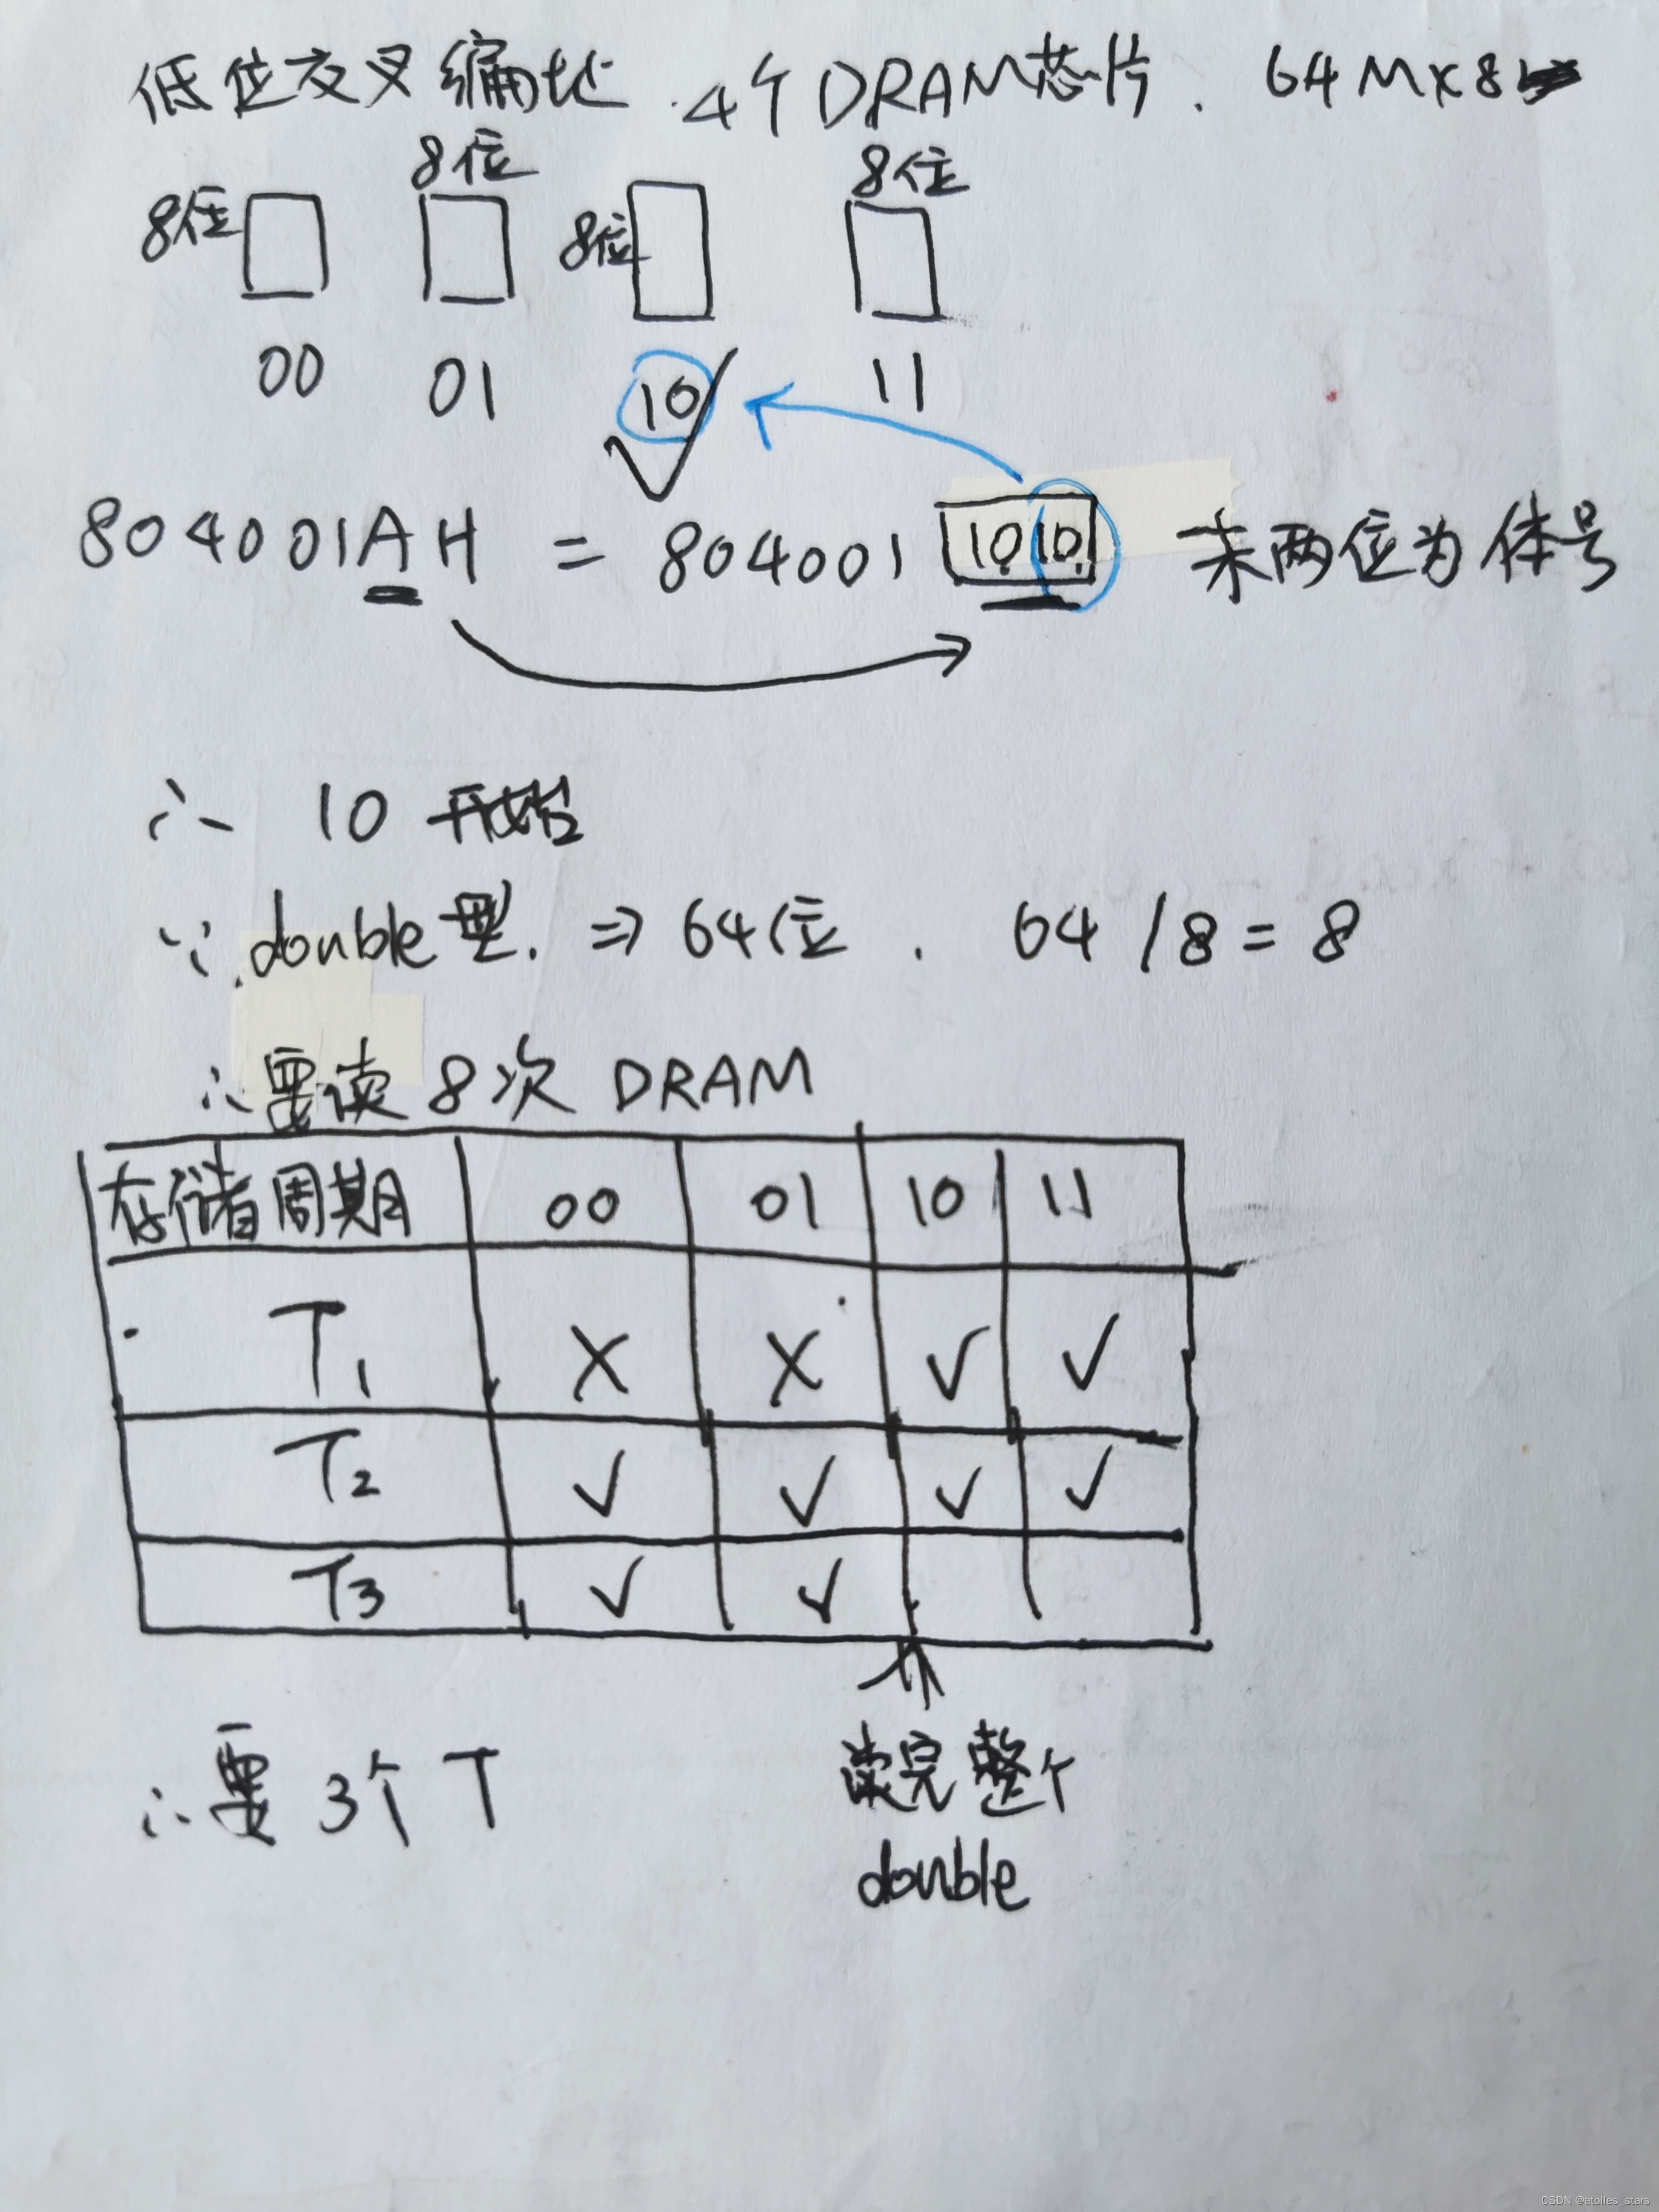 低位交叉编址 .4个DRAM芯片. 64M×8
8位 8位 8位 8位
00 01 10 11
804001AH = 804001 1010 末两位为体号
∴ 10 开始
∵ double型. ⇒ 64位. 64 / 8 = 8
∴ 要读 8次 DRAM
存储周期 00 01 10 11
T1 × × √ √
T2 √ √ √ √
T3 √ √
∴ 要 3个 T
读完整个
double
CSDN @etoiles_stars